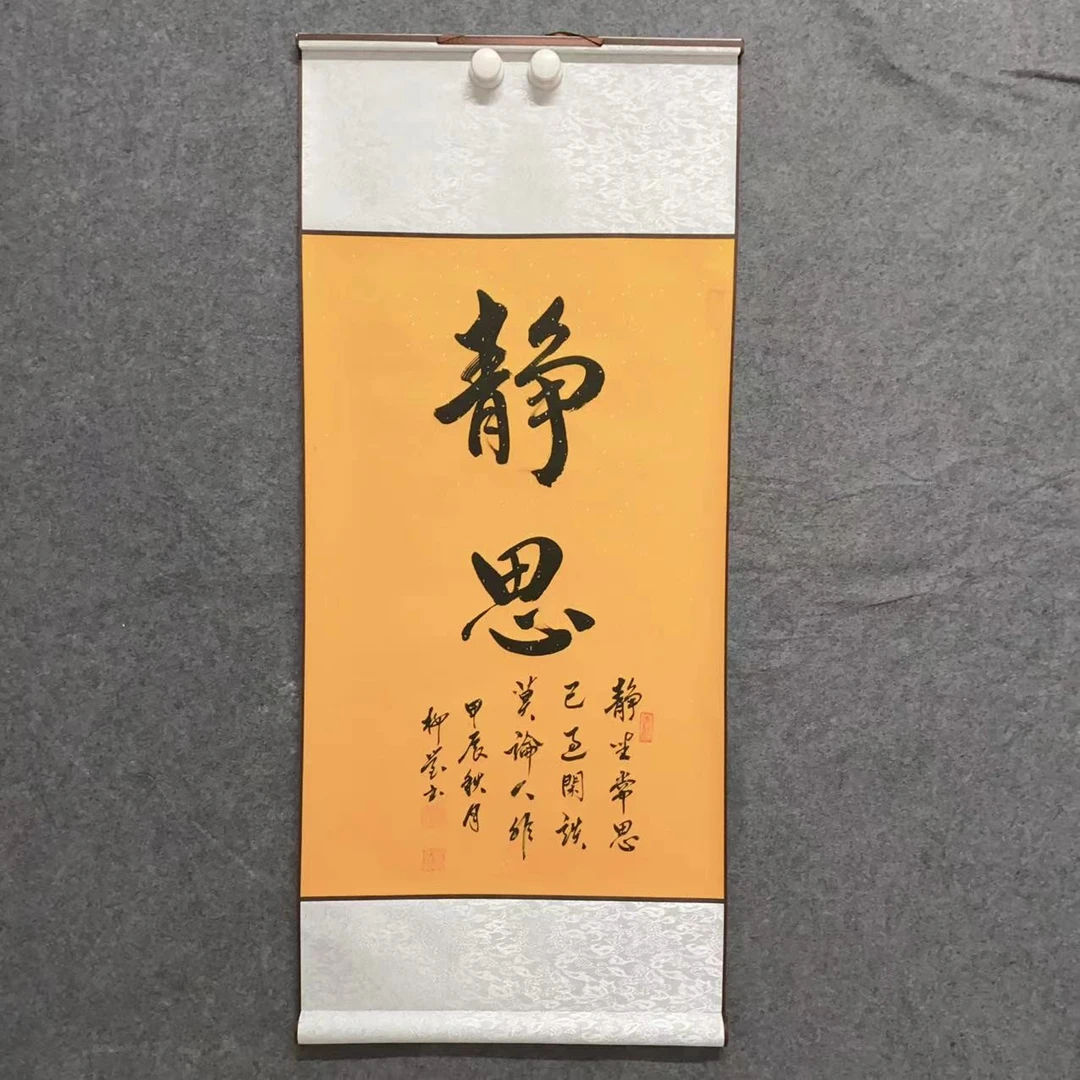 静
思
静坐常思
己过閑談
莫論人非
甲辰秋月
柳莹书